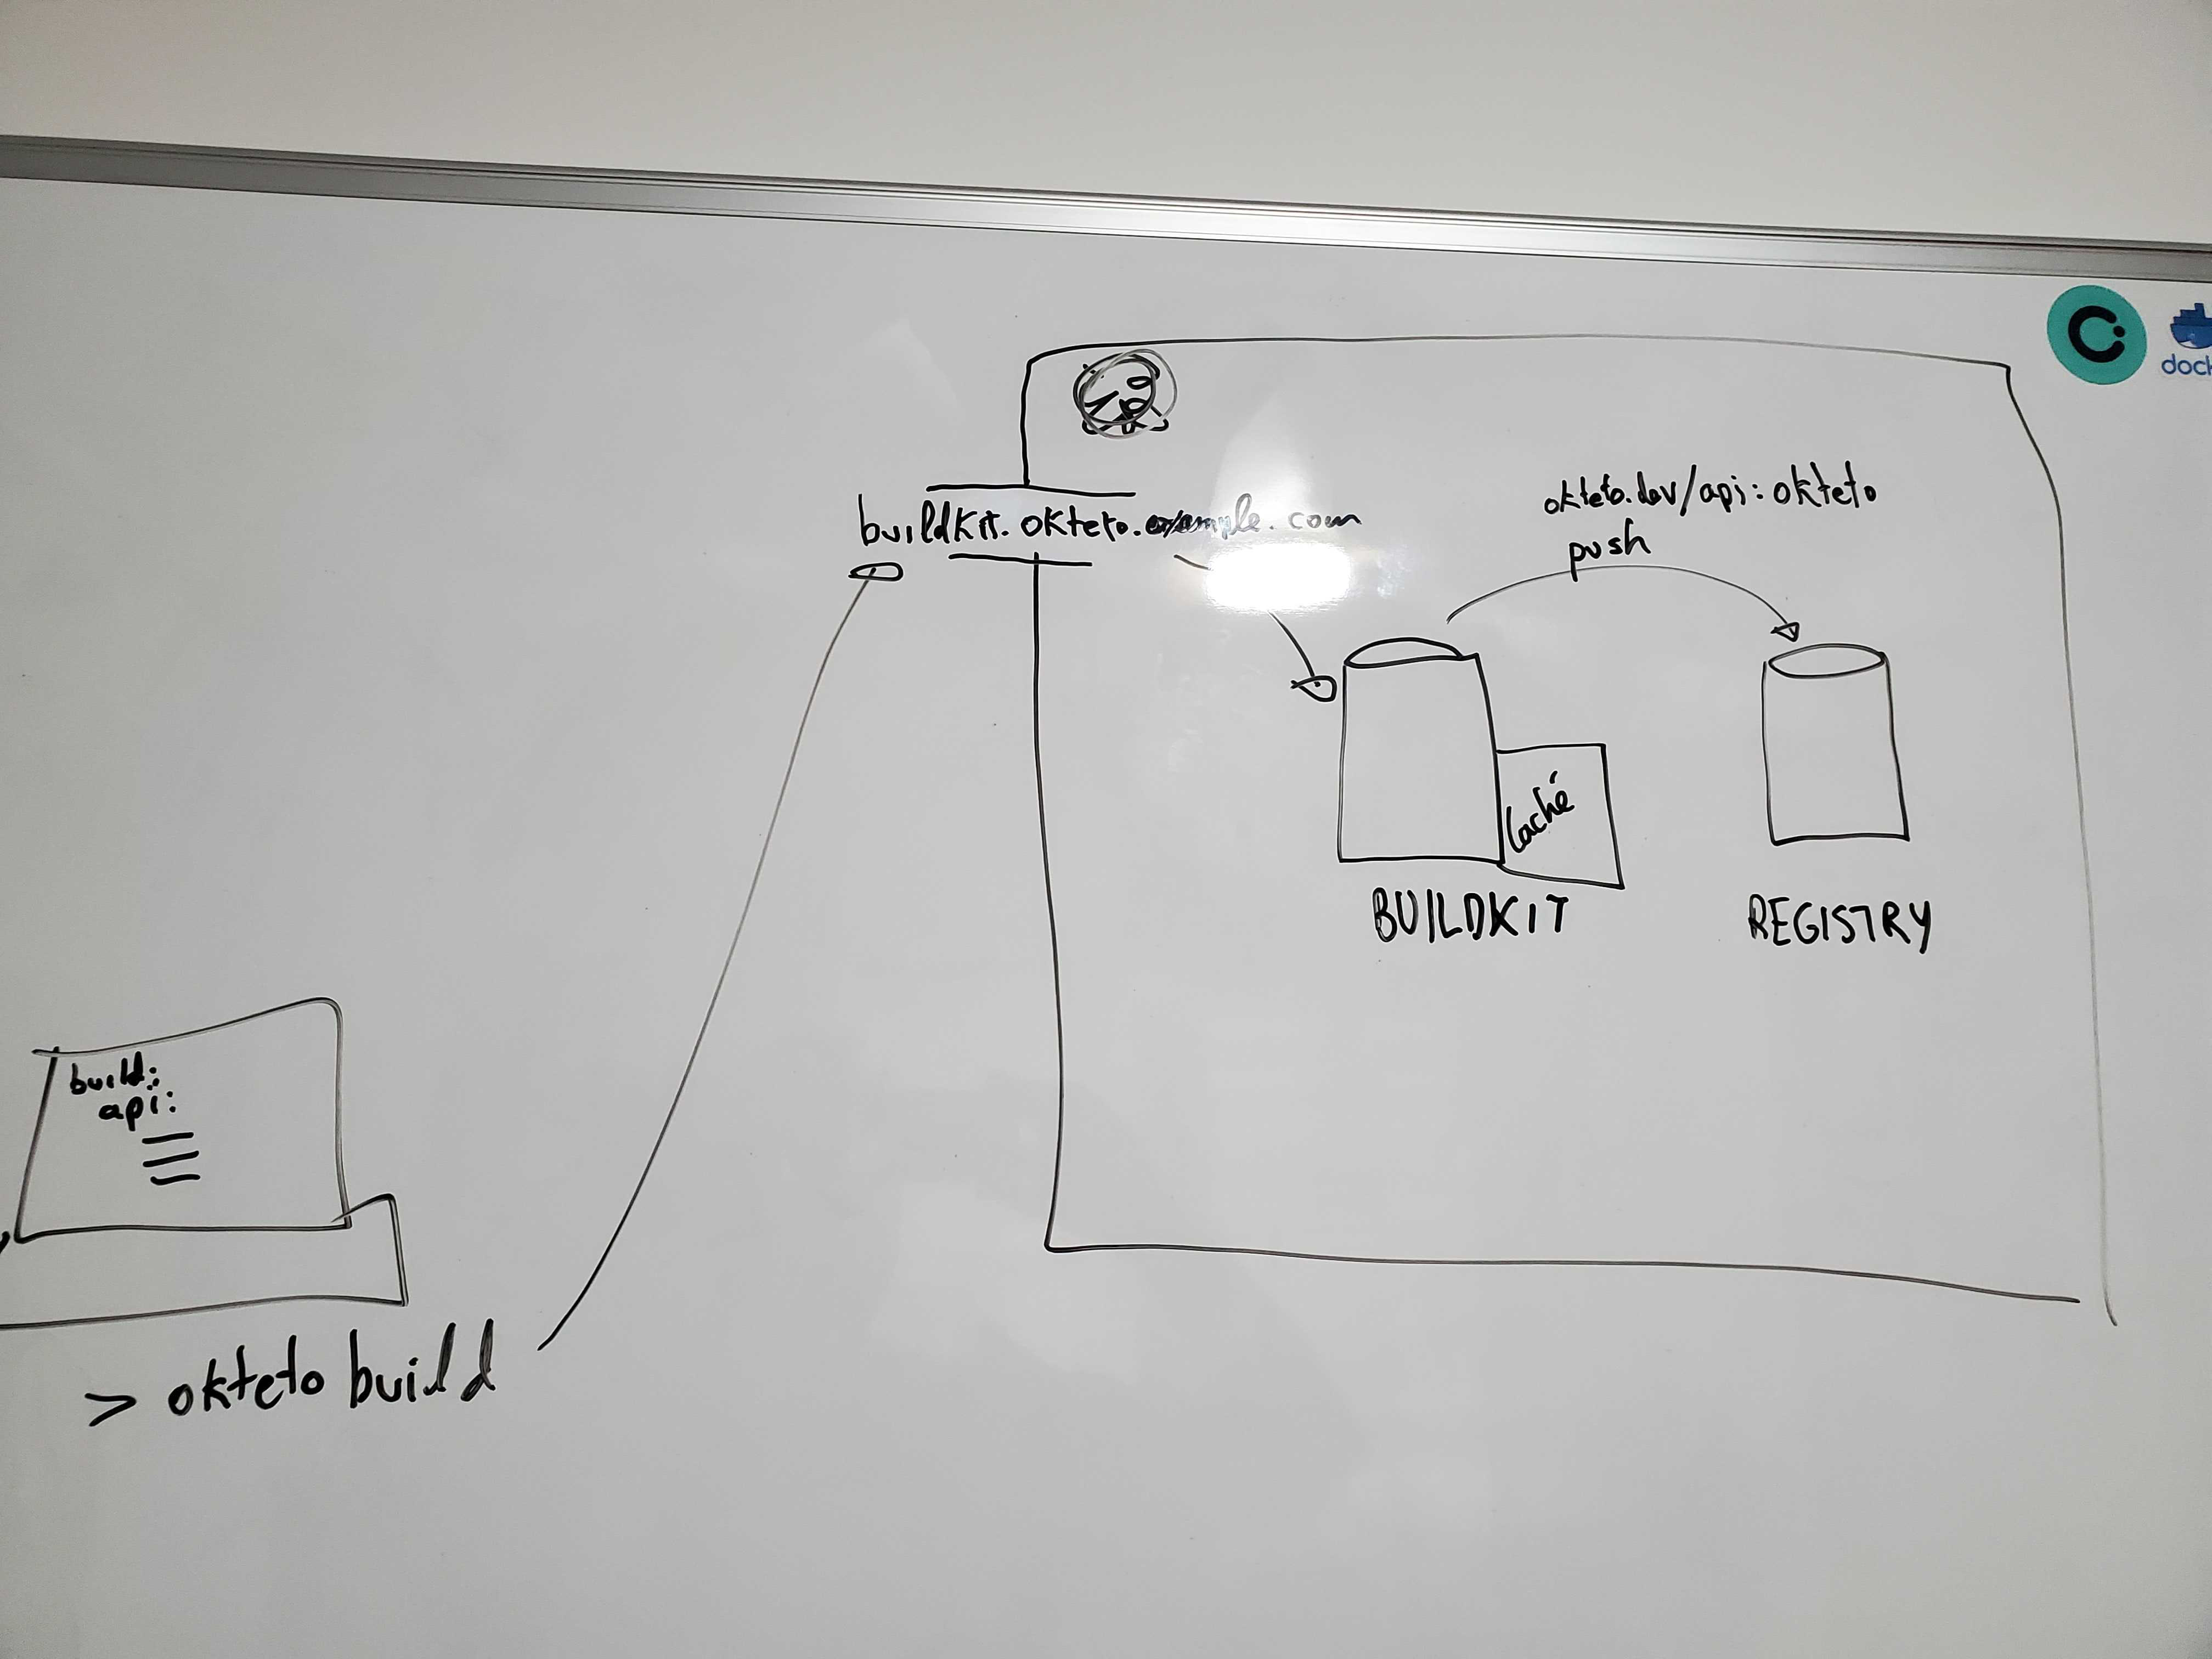 buildkit.okteto.example.com
okteto.dev/api:okteto
push
Caché
BUILDKIT
REGISTRY
build:
api:
> okteto build